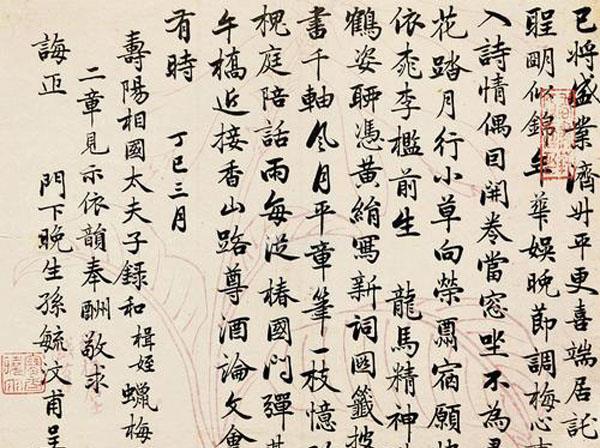 已將盛業濟升平更喜端居託
聖明似錦年華娛晚節調梅心
入詩情偶因開卷當窗坐不為
花踏月行小草向榮霑宿願
依桃李檻前生 龍馬精神
鶴姿聊憑黃絹寫新詞圖籤披
書千軸風月平章筆一枝憶
槐庭陪話雨每從椿國門彈
午橋近接香山路尊酒論文會
有時 丁巳三月
壽陽相國太夫子錄和楫姪蠟梅
二章見示依韻奉酬敬求
誨正 門下晚生孫毓汶甫呈